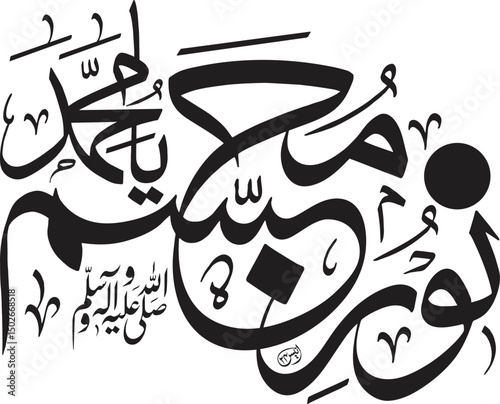 نُورِ مُجَسّم
یا مُحمّدؐ
صلی اللہ علیہ وآلہ وسلم
Adobe Stock | #1502668518